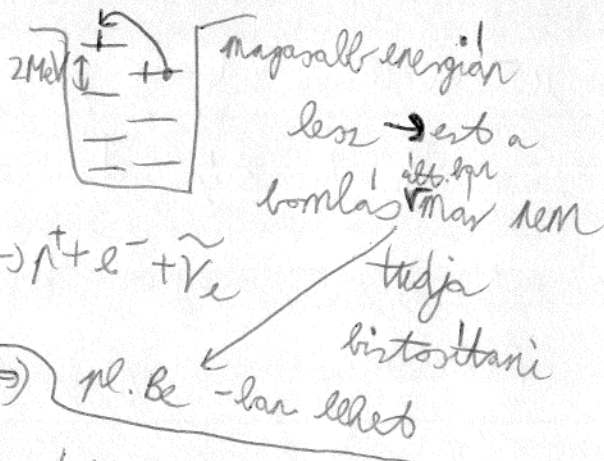 2MeV
magasabb energián
lesz → ezt a
ált. ban
bomlás már nem
tudja
biztosítani
→ p⁺ + e⁻ + ν̃ₑ
⇒ pl. Be -ban lehet